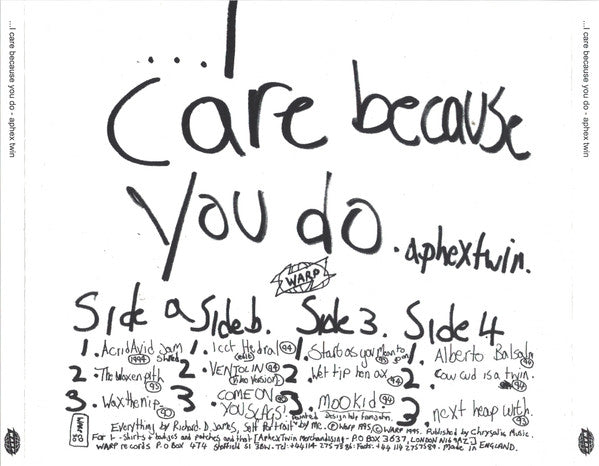 ...I
care because
you do. aphex twin.
WARP
Side a
1. Acrid Avid Jam
Shred 1994
2. The Waxen pith 93
3. Wax the nip 90
Side b.
1. Icct Hedral 94
(edit)
2. VENTOLIN 94
(Video Version)
3. COME ON
YOU SLAGS! 90
Side 3.
1. Start as you Mean to go on 93
2. Wet tip hen ax 94
3. Mookid 94
Side 4
1. Alberto Balsalm 94
2. Cow cud is a twin. 94
3. next heap with. 93
WARP
30
Everything by Richard. D. James, Self Portrait painted by me. Ⓟ Warp 1995. © WARP 1995. Published by Chrysalis Music.
For t-shirts & badges and patches and that [Aphex Twin Merchandising - P O BOX 3637, LONDON N16 9AZ]
WARP records P.O BOX 474 Sheffield Made in ENGLAND.
...I care because you do - aphex twin
...I care because you do - aphex twin